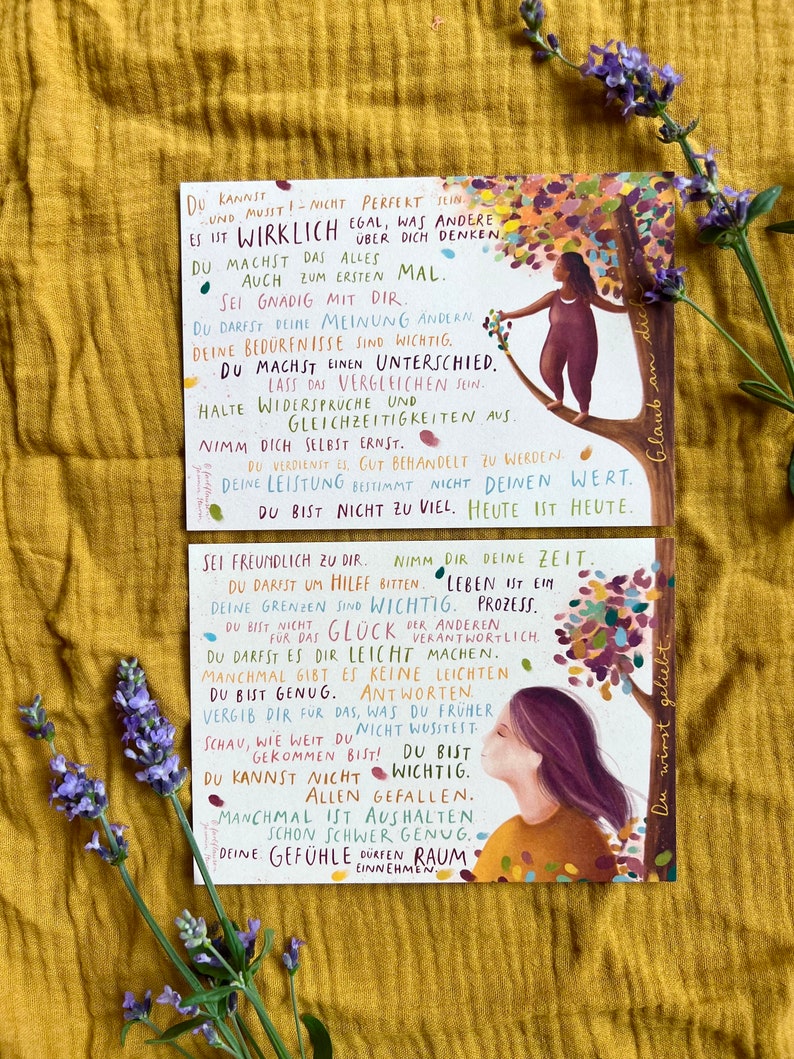 DU KANNST
- UND MUSST! - NICHT PERFEKT SEIN.
ES IST WIRKLICH EGAL, WAS ANDERE
ÜBER DICH DENKEN.
DU MACHST DAS ALLES
AUCH ZUM ERSTEN MAL.
SEI GNÄDIG MIT DIR.
DU DARFST DEINE MEINUNG ÄNDERN.
DEINE BEDÜRFNISSE SIND WICHTIG.
DU MACHST EINEN UNTERSCHIED.
LASS DAS VERGLEICHEN SEIN.
HALTE WIDERSPRÜCHE UND
GLEICHZEITIGKEITEN AUS.
NIMM DICH SELBST ERNST.
DU VERDIENST ES, GUT BEHANDELT ZU WERDEN.
DEINE LEISTUNG BESTIMMT NICHT DEINEN WERT.
DU BIST NICHT ZU VIEL. HEUTE IST HEUTE.
Glaub an dich.
SEI FREUNDLICH ZU DIR. NIMM DIR DEINE ZEIT.
DU DARFST UM HILFE BITTEN. LEBEN IST EIN
DEINE GRENZEN SIND WICHTIG. PROZESS.
DU BIST NICHT
FÜR DAS GLÜCK DER ANDEREN
VERANTWORTLICH.
DU DARFST ES DIR LEICHT MACHEN.
MANCHMAL GIBT ES KEINE LEICHTEN
DU BIST GENUG. ANTWORTEN.
VERGIB DIR FÜR DAS, WAS DU FRÜHER
NICHT WUSSTEST.
SCHAU, WIE WEIT DU
GEKOMMEN BIST! DU BIST
WICHTIG.
DU KANNST NICHT
ALLEN GEFALLEN.
MANCHMAL IST AUSHALTEN
SCHON SCHWER GENUG.
DEINE GEFÜHLE DÜRFEN RAUM
EINNEHMEN.
Du wirst geliebt.